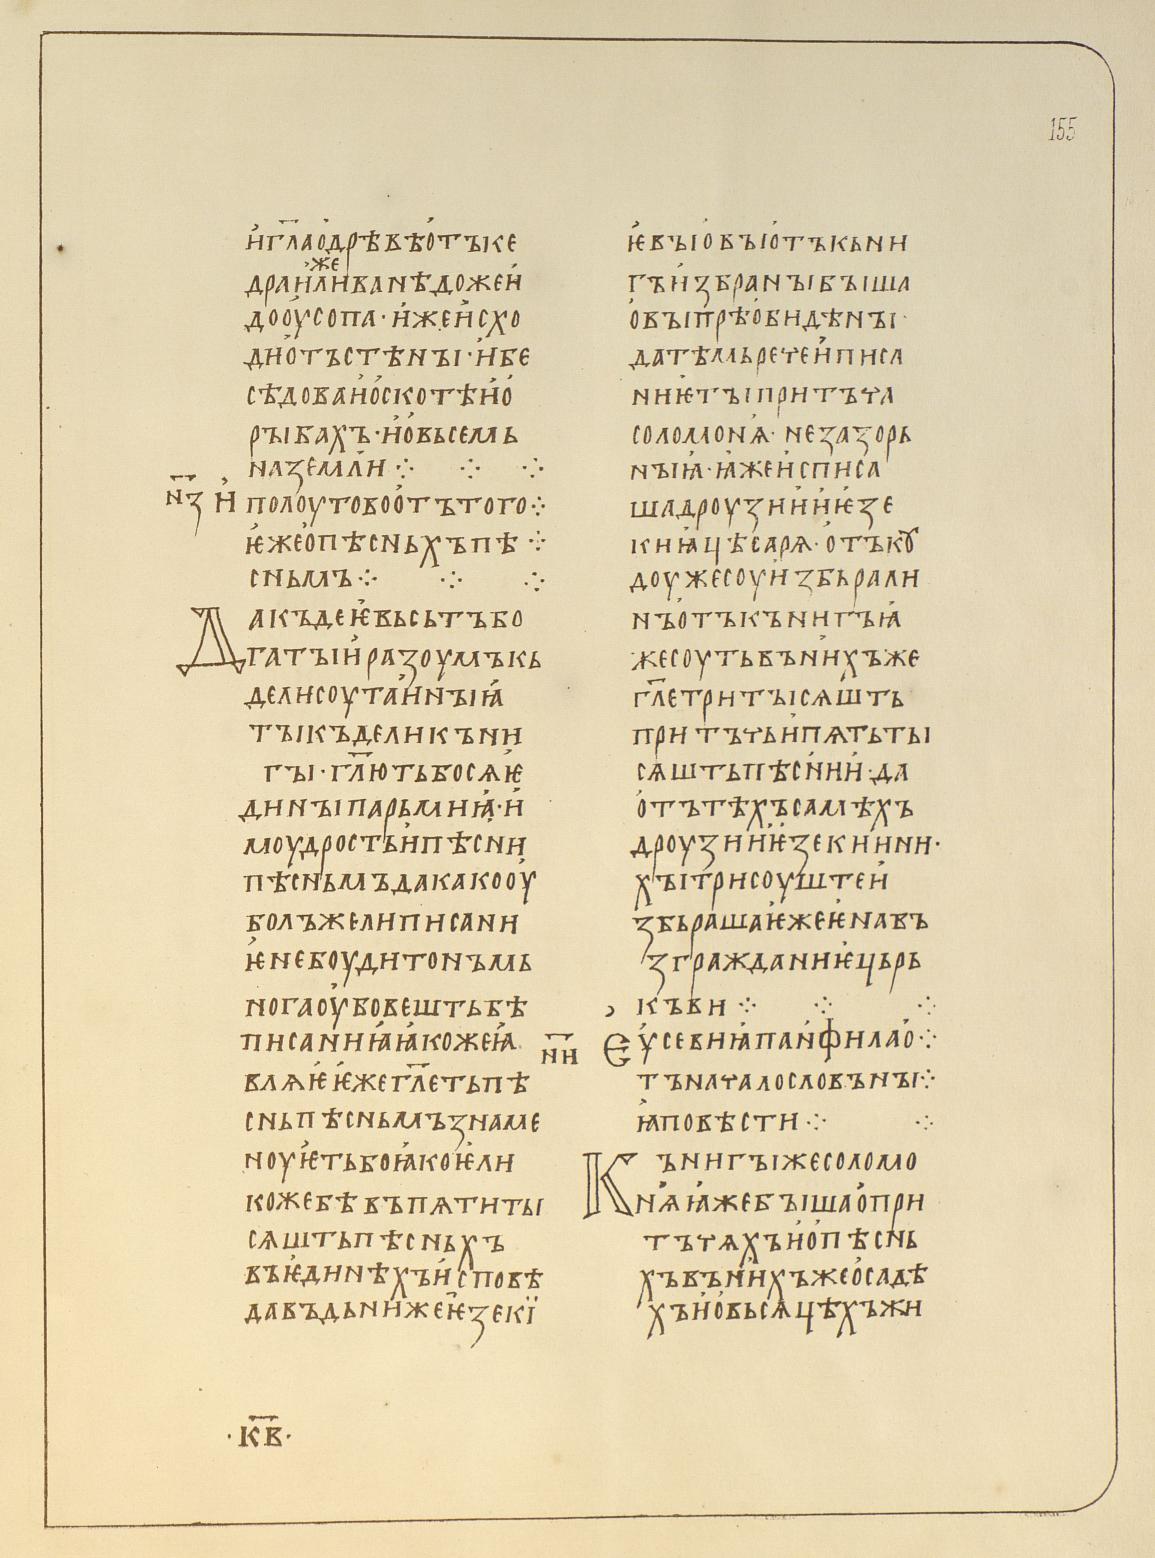 155
и҆г҃лаѻ҆дрѣвѣѻ҆тъке
же
драи҆ливанѣдожеи҆
дооу҆сопа· и҆жеи҆схо
диѻ҆тъстѣны· и҆бе
сѣдоваи҆ѻ҆скотѣи҆ѻ҆
рыбахъ· и҆ѻ҆вьсемь
наземли ⁘ ⁘ ⁘
н҃з И҆полоутовоѻ҆тътого⁘
ѥ҆жеѻ҆пѣсньхъпѣ ⁘
сньмъ⁘ ⁘ ⁘
Дакъдеѥ҆вьсьтъбо
гатыи҆разоумъкь
делисоутаи҆нъыꙗ҆
тыкъделикъни
гы· гл҃ютьбосѧѥ҆
динъıпарьмиꙗ҆· и҆
моудростьи҆пѣсни
пѣсньмъдакакооу҆
болъжелиписани
ѥ҆небоудитонъмь
ногаоу҆бовештьбѣ
писаниꙗ҆ꙗ҆кожеꙗ҆
влѧѥ҆ѥ҆жегл҃етьпѣ
сньпѣсньмъзнаме
ноуѥ҆тьбоꙗ҆коѥ҆ли
кожебѣвъпѧтиты
сѧштьпѣсньхъ
въѥ҆динѣхъи҆сповѣ
давъдьнижеѥ҆зекї
·к҃в·
ѥ҆выѻ҆выѻ҆тъкьни
гъи҆збранъıбъıша
ѻ҆выпрѣѻ҆бидѣны·
датѣмьречеи҆писа
ниѥ҆тъıпритъча
соломонѧ· незазорь
ныꙗ҆· ꙗ҆жеи҆списа
шадроузиии҆ѥ҆зе
киꙗ҆цѣсарѧ· ѻ҆тъкꙋ
доужесоуи҆збьрали
нъѻ҆тъкънигъꙗ҆
жесоутьвъни҆хъже
гл҃етритысѧшть
притъчьи҆пѧтьты
сѧштьпѣснии҆·да
ѻ҆тътѣхъсамѣхъ
дроузииѥ҆зекиини·
хъıтрисоуштеи҆
збьрашаѥ҆жеѥ҆навъ
згражданиѥ҆цьрь
къви ⁘ ⁘ ⁘
н҃и Єу҆севиꙗ҆паи҆филаѻ҆⁘
тъначалословънъı⁘
ꙗ҆повѣсти⁘ ⁘
Кънигыжесоломо
нѧꙗ҆жебъıшаѻ҆при
тъчѧхъи҆ѻ҆пѣснь
хъвъни҆хъжеѻ҆садѣ
хъи҆ѻ҆вьсѧцѣхъжи